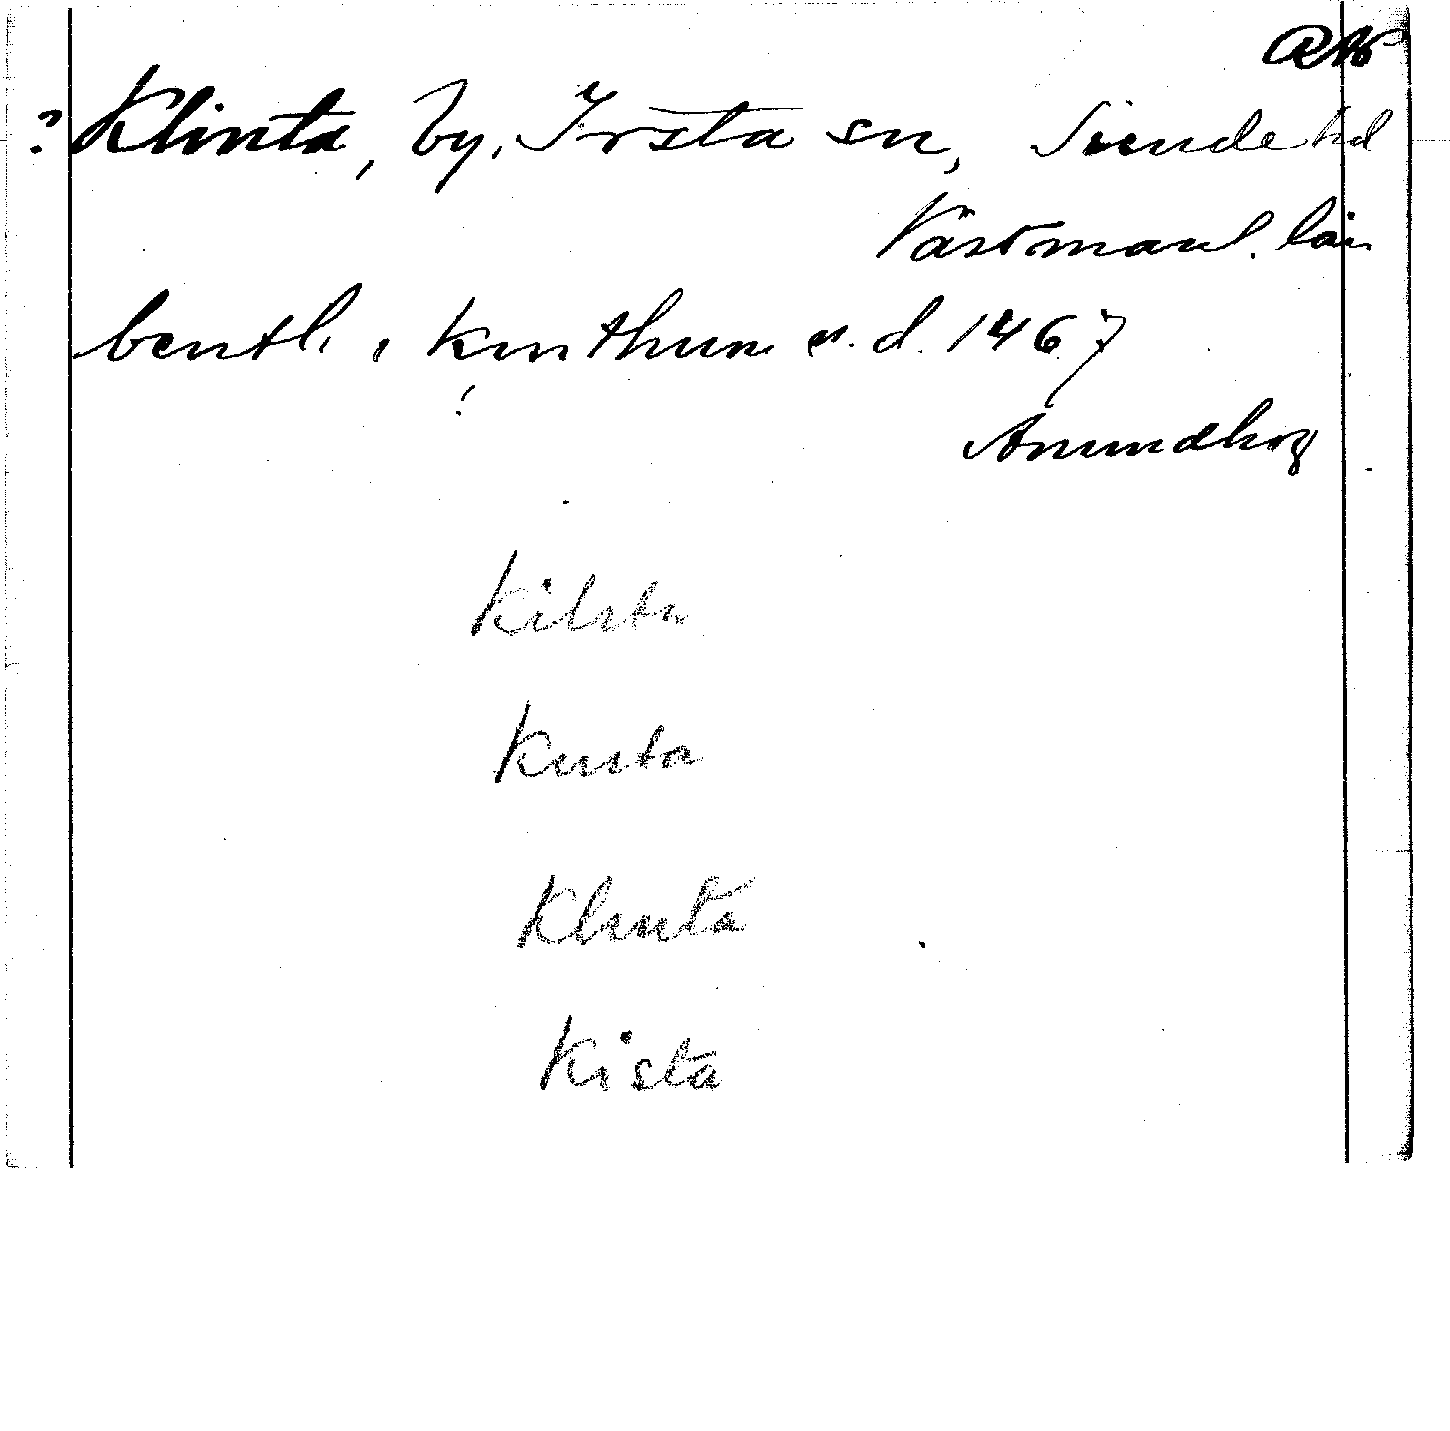 RA
? Klinta, by, Irsta sn, Siende hd
Västmanl. län
bentl. i kinthum u.d. 1467
!
Anundhög
Kilsta
Knista
Klinta
Kista